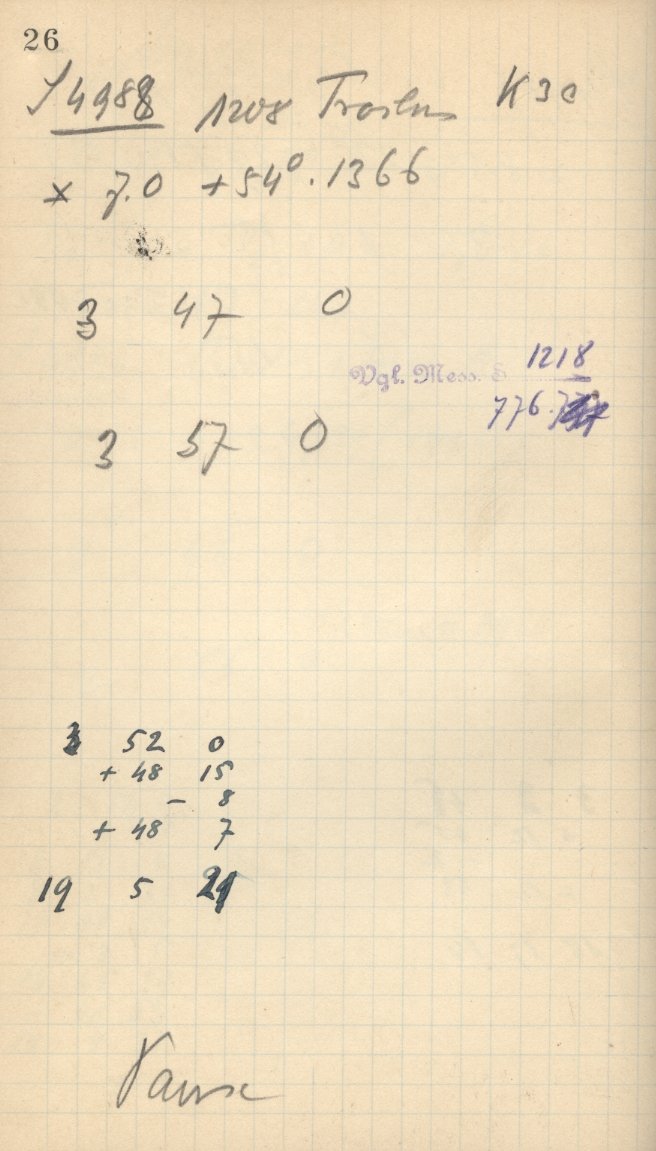 26
J 4988 1208 Troilus K 30
× 7.0 +54°.1366
3 47 0
1218
Vgl. Mess. S
776.
3 57 0
3 52 0
+ 48 15
− 8
+ 48 7
19 5 21
Pause